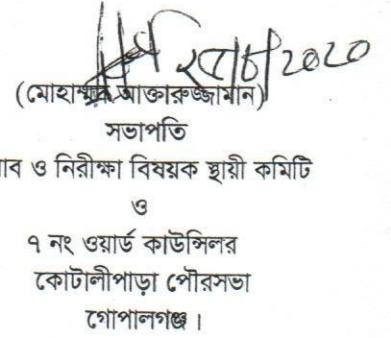 ২৫/৮/2020
(মোহাম্মদ আক্তারুজ্জামান)
সভাপতি
াব ও নিরীক্ষা বিষয়ক স্থায়ী কমিটি
ও
৭ নং ওয়ার্ড কাউন্সিলর
কোটালীপাড়া পৌরসভা
গোপালগঞ্জ।